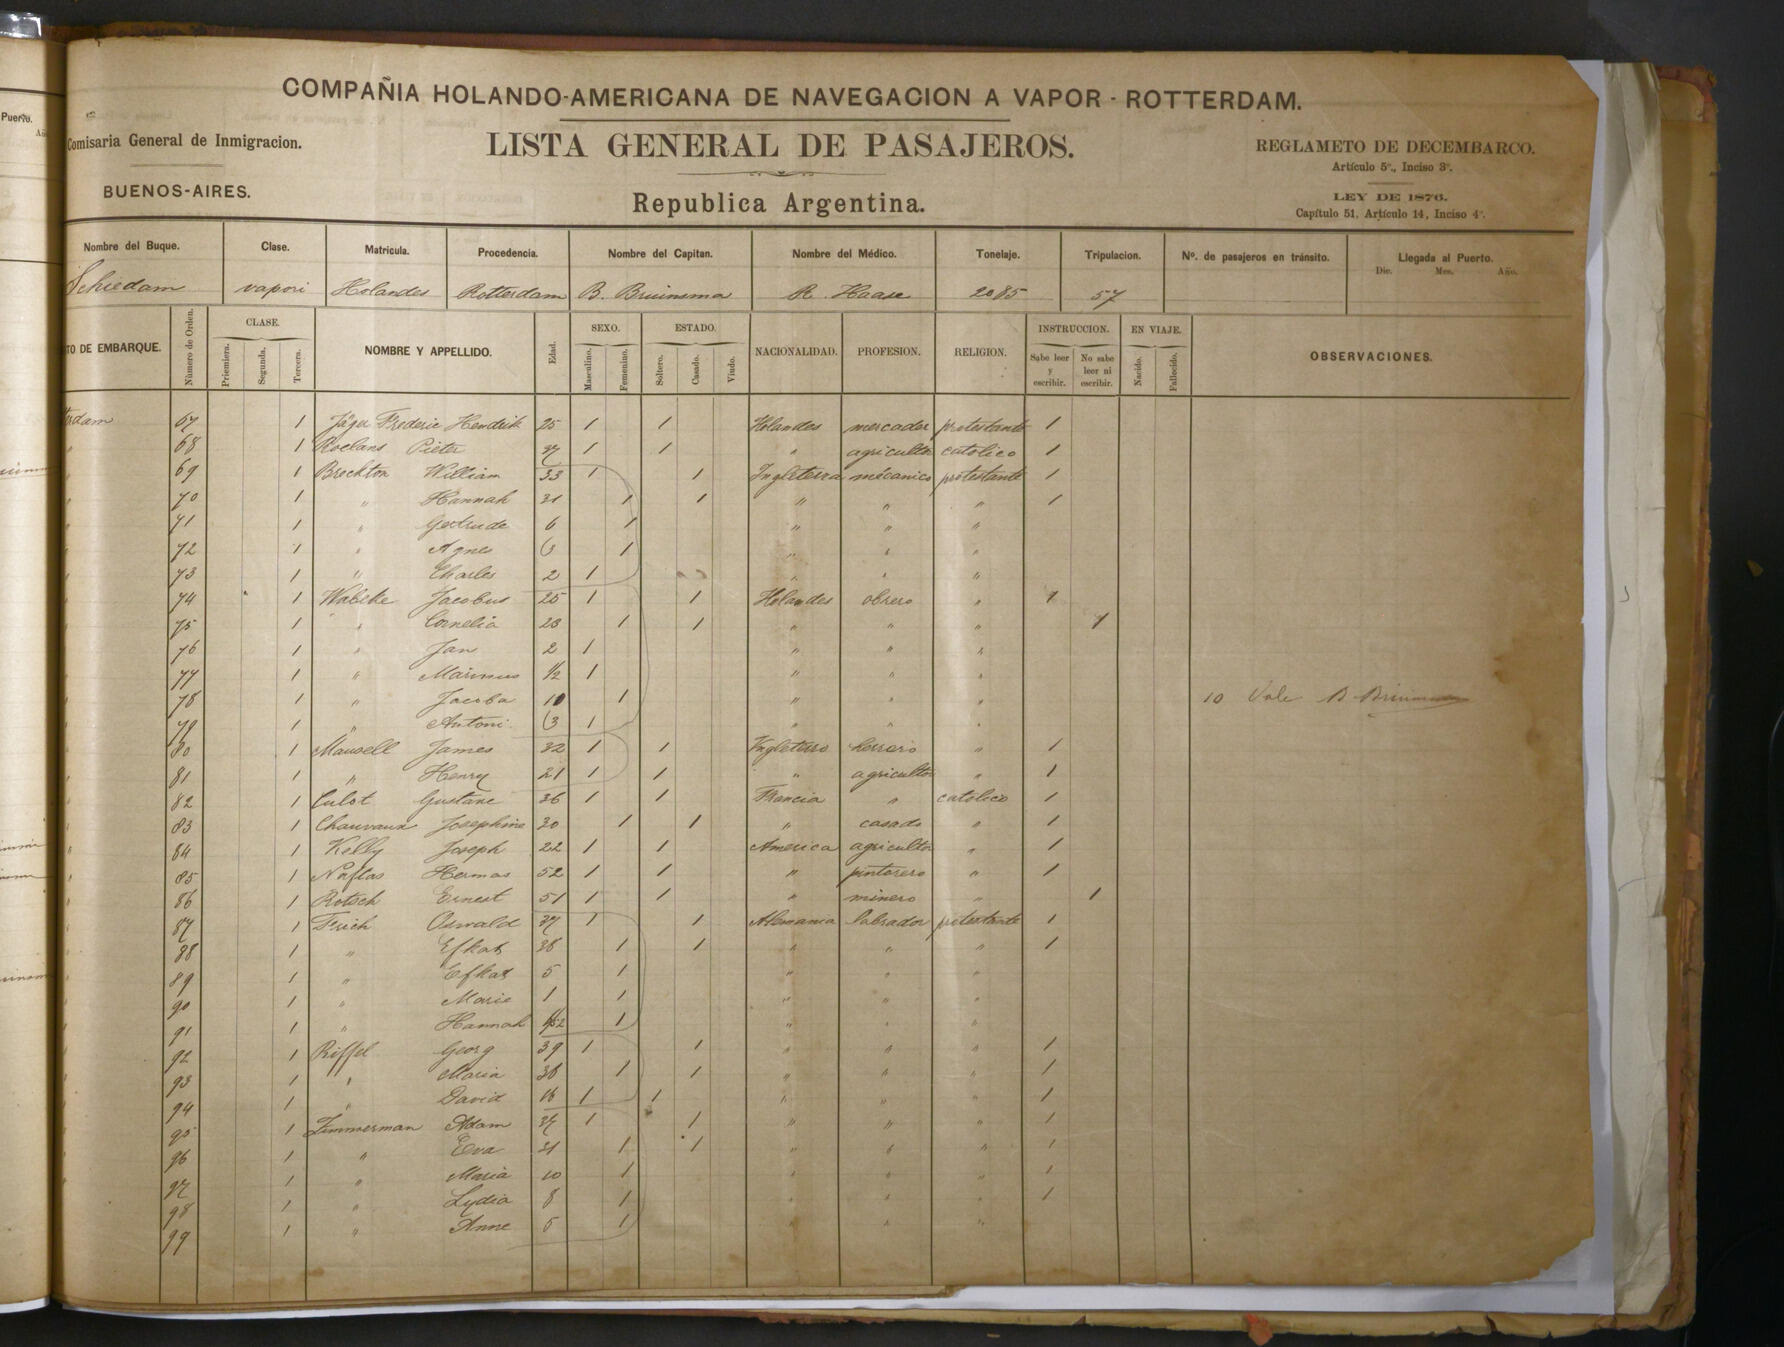 COMPAÑIA HOLANDO-AMERICANA DE NAVEGACION A VAPOR - ROTTERDAM.
Comisaria General de Inmigracion.
BUENOS-AIRES.
LISTA GENERAL DE PASAJEROS.
Republica Argentina.
REGLAMETO DE DECEMBARCO.
Artículo 5º., Inciso 3º.
LEY DE 1876.
Capítulo 51, Artículo 14, Inciso 4º.
Puerto.
Nombre del Buque. Clase. Matricula. Procedencia. Nombre del Capitan. Nombre del Médico. Tonelaje. Tripulacion. Nº. de pasajeros en tránsito. Llegada al Puerto.
Die. Mes. Año.
Schiedam vapori Holandes Rotterdam B. Bruinsma R. Haase 2085 57
TO DE EMBARQUE. Número de Orden. CLASE. Priemiera. Segunda. Tercera. NOMBRE Y APPELLIDO. Edad. SEXO. Masculino. Femenino. ESTADO. Soltero. Casado. Viudo. NACIONALIDAD. PROFESION. RELIGION. INSTRUCCION. Sabe leer y escribir. No sabe leer ni escribir. EN VIAJE. Nacido. Fallecido. OBSERVACIONES.
rdam 67 1 Jäger Frederic Hendrik 25 1 1 Holandes mercader protestante 1
" 68 1 Roelans Pieter 37 1 1 " agricultor catolico 1
" 69 1 Brockton William 33 1 1 Ingleterra mécanico protestante 1
" 70 1 " Hannah 31 1 1 " " " 1
" 71 1 " Gertrude 6 1 " " "
" 72 1 " Agnes 3 1 " " "
" 73 1 " Charles 2 1 " " "
" 74 1 Wabeke Jacobus 25 1 1 Holandes obrero " 1
" 75 1 " Cornelia 28 1 1 " " " 1
" 76 1 " Jan 2 1 " " "
" 77 1 " Marinus 1/2 1 " " "
" 78 1 " Jacoba 10 1 " " " 10 Vale B Bruinsma
" 79 1 " Antoni 3 1 " " "
" 80 1 Mansell James 32 1 1 Ingleterro herrero " 1
" 81 1 " Henry 21 1 1 " agricultor " 1
" 82 1 Culot Gustave 36 1 1 Francia " catolico 1
" 83 1 Chauvaux Josephine 30 1 1 " casado " 1
" 84 1 Kelly Joseph 22 1 1 America agricultor " 1
" 85 1 Naflas Hermas 52 1 1 " pintorero " 1
" 86 1 Rotsch Ernest 51 1 1 " minero " 1
" 87 1 Ferich Oswald 37 1 1 Alemania labrador protestante 1
" 88 1 " Efkat 38 1 1 " " " 1
" 89 1 " Efkat 5 1 " " "
" 90 1 " Marie 1 1 " " "
" 91 1 " Hannah 1 " " "
" 92 1 Riffel Georg 39 1 1 " " " 1
" 93 1 " Maria 38 1 1 " " " 1
" 94 1 " David 16 1 1 " " " 1
" 95 1 Zimmerman Adam 37 1 1 " " " 1
" 96 1 " Eva 31 1 1 " " " 1
" 97 1 " Maria 10 1 " " " 1
" 98 1 " Lydia 8 1 " " " 1
" 99 1 " Anne 5 1 " " "